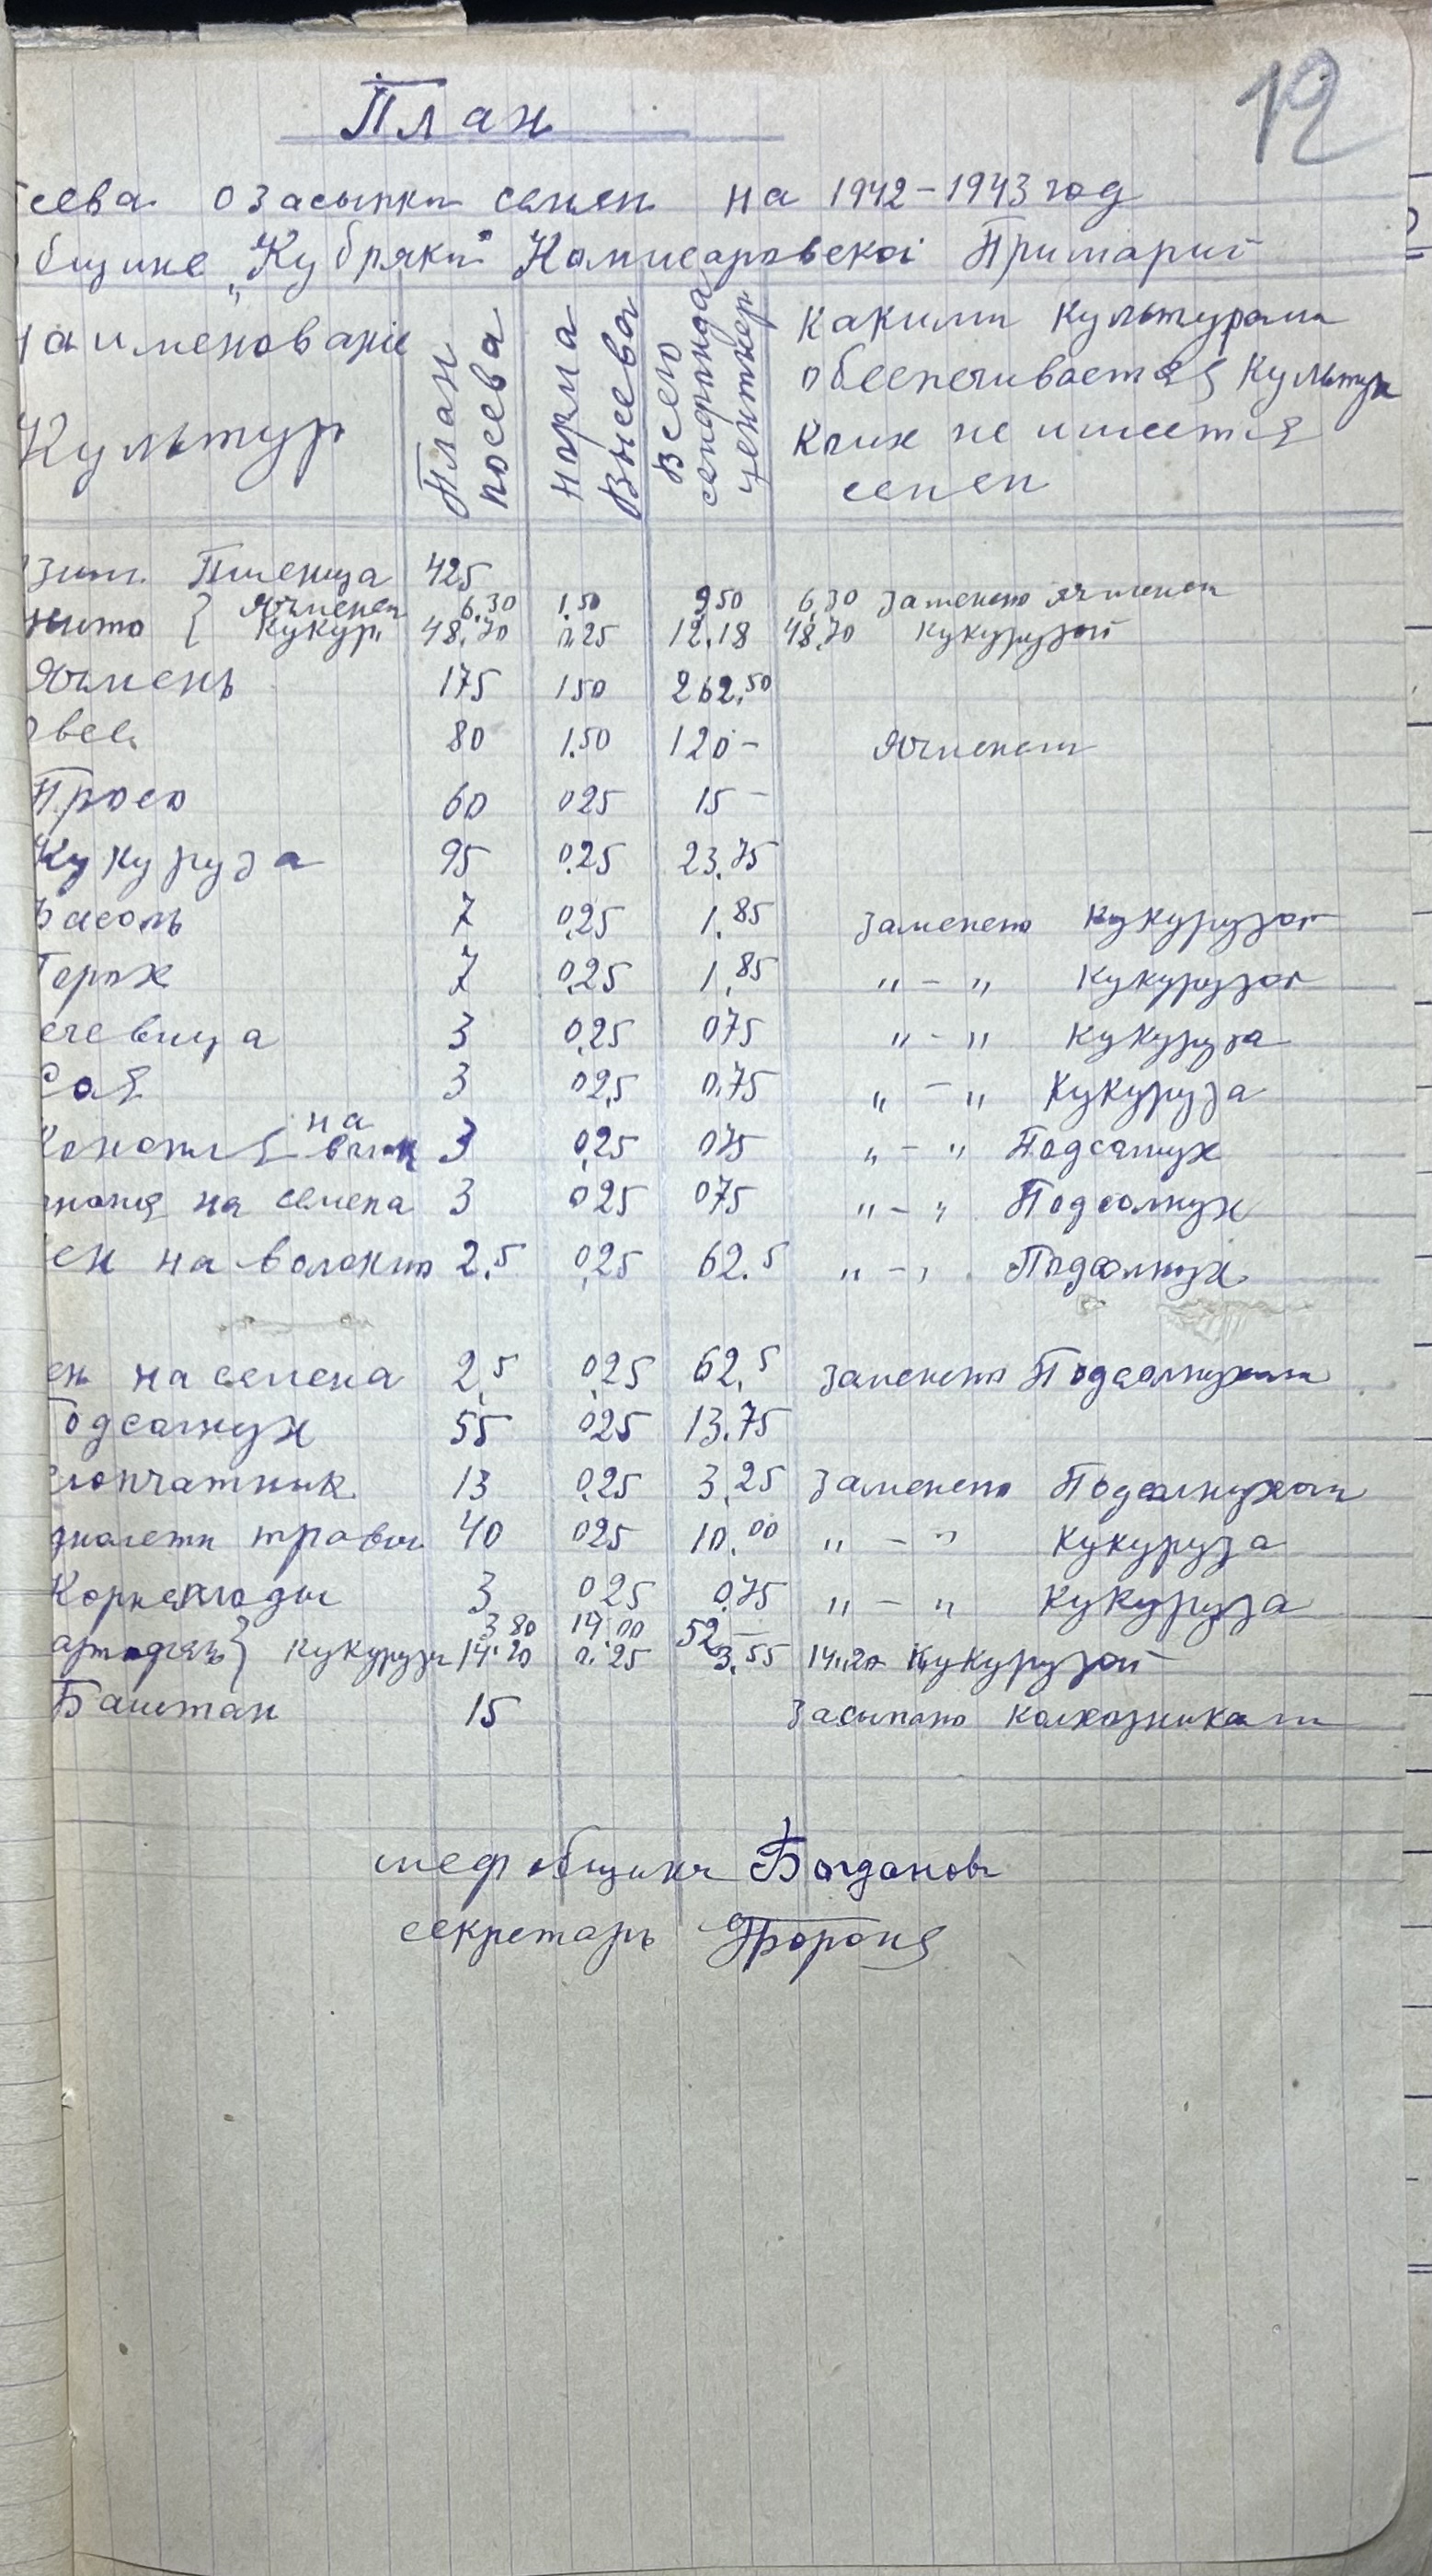 12
План
сева о засыпки семен на 1942-1943 год
бщине „Кубряки" Комисаровскоі Примарии
наименование
Культур
План посева
Норма Высева
Всего семфонда центнер
какими культурами
обеспечивается культура
каких не имеется
семен
зим. Пшеница 425
Ячменем 6.30 1.50 9.50 6.30 заменено ячменем
жито { Кукур. 48.70 0.25 12.18 48.70 кукурузой
Ячмень 175 150 262.50
Овес 80 1.50 120- Ячменем
Просо 60 025 15-
Кукуруза 95 0.25 23.75
Фасоль 7 0.25 1.85 заменено кукурузой
Горох 7 0.25 1.85 "-" кукурузой
ечевица 3 0.25 075 "-" кукуруза
Соя 3 0.25 0.75 "-" Кукуруза
Конопля на волок 3 0.25 075 "-" Подсалнух
нопля на семена 3 025 075 "-" Подсолнух
ен на волокно 2.5 0.25 62.5 "-" Подсолнух
ен на семена 2.5 0.25 62.5 заменено Подсолнухом
Подсолнух 55 025 13.75
лопчатник 13 0.25 3.25 заменено Подсолнухом
днолетн травы 40 025 10.00 "-" Кукуруза
Корнеплоды 3 025 0.75 "-" Кукуруза
3.80 14.00 52-
артофель} кукурузы 14.20 0.25 3.55 14.20 кукурузой
Баштан 15 засыпано колхозникам
шеф общины Богданов
секретарь